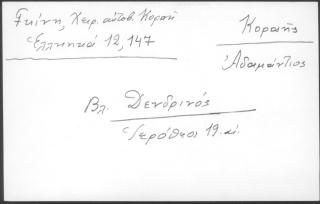 Γκίνη, Χειρ. αὐτοβ. Κοραῆ
Ἑλληνικά 12, 147
Κοραῆς
Ἀδαμάντιος
Βλ. Δενδρινός
Ἱερόθεος 19. αἰ.